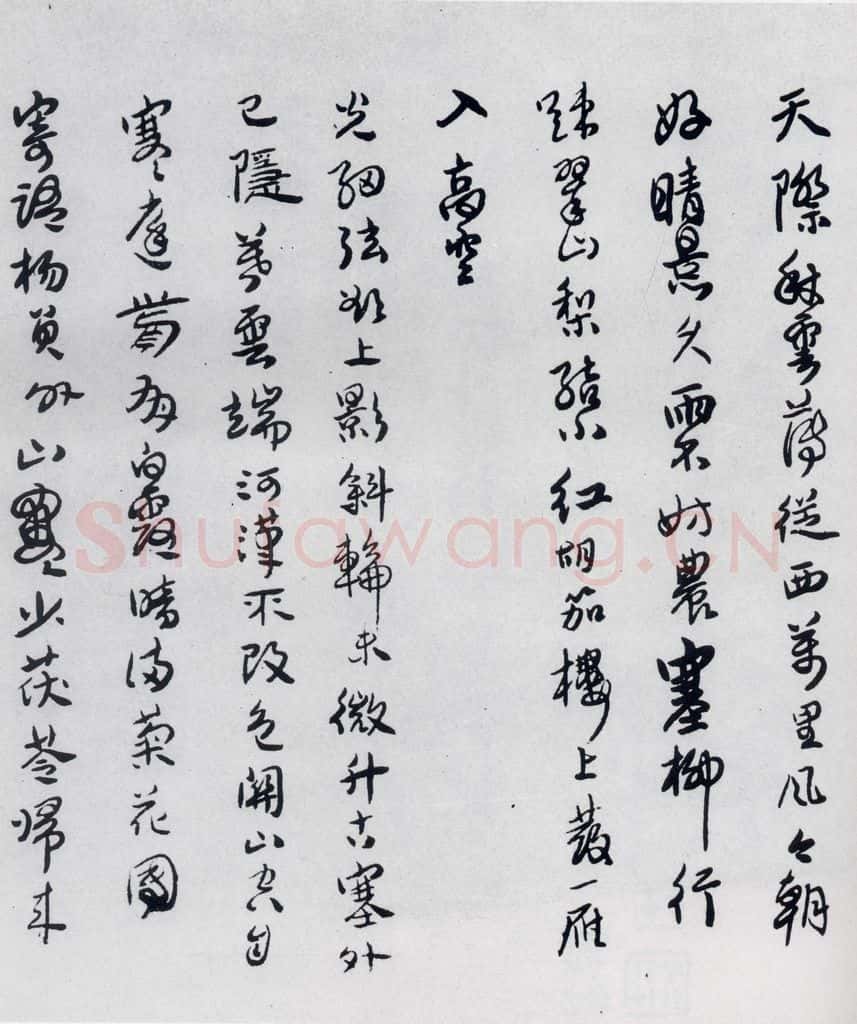 天際秋雲薄從西萬里風今朝
好晴景久雨不妨農塞柳行
疎翠山梨結小紅胡笳樓上發一雁
入高空
光細弦欲上影斜輪未微升古塞外
已隱莫雲端河漢不改色關山空自
寒庭前有白露暗滿菊花團
寄語楊員外山寒少茯苓歸來
Shufawang.CN